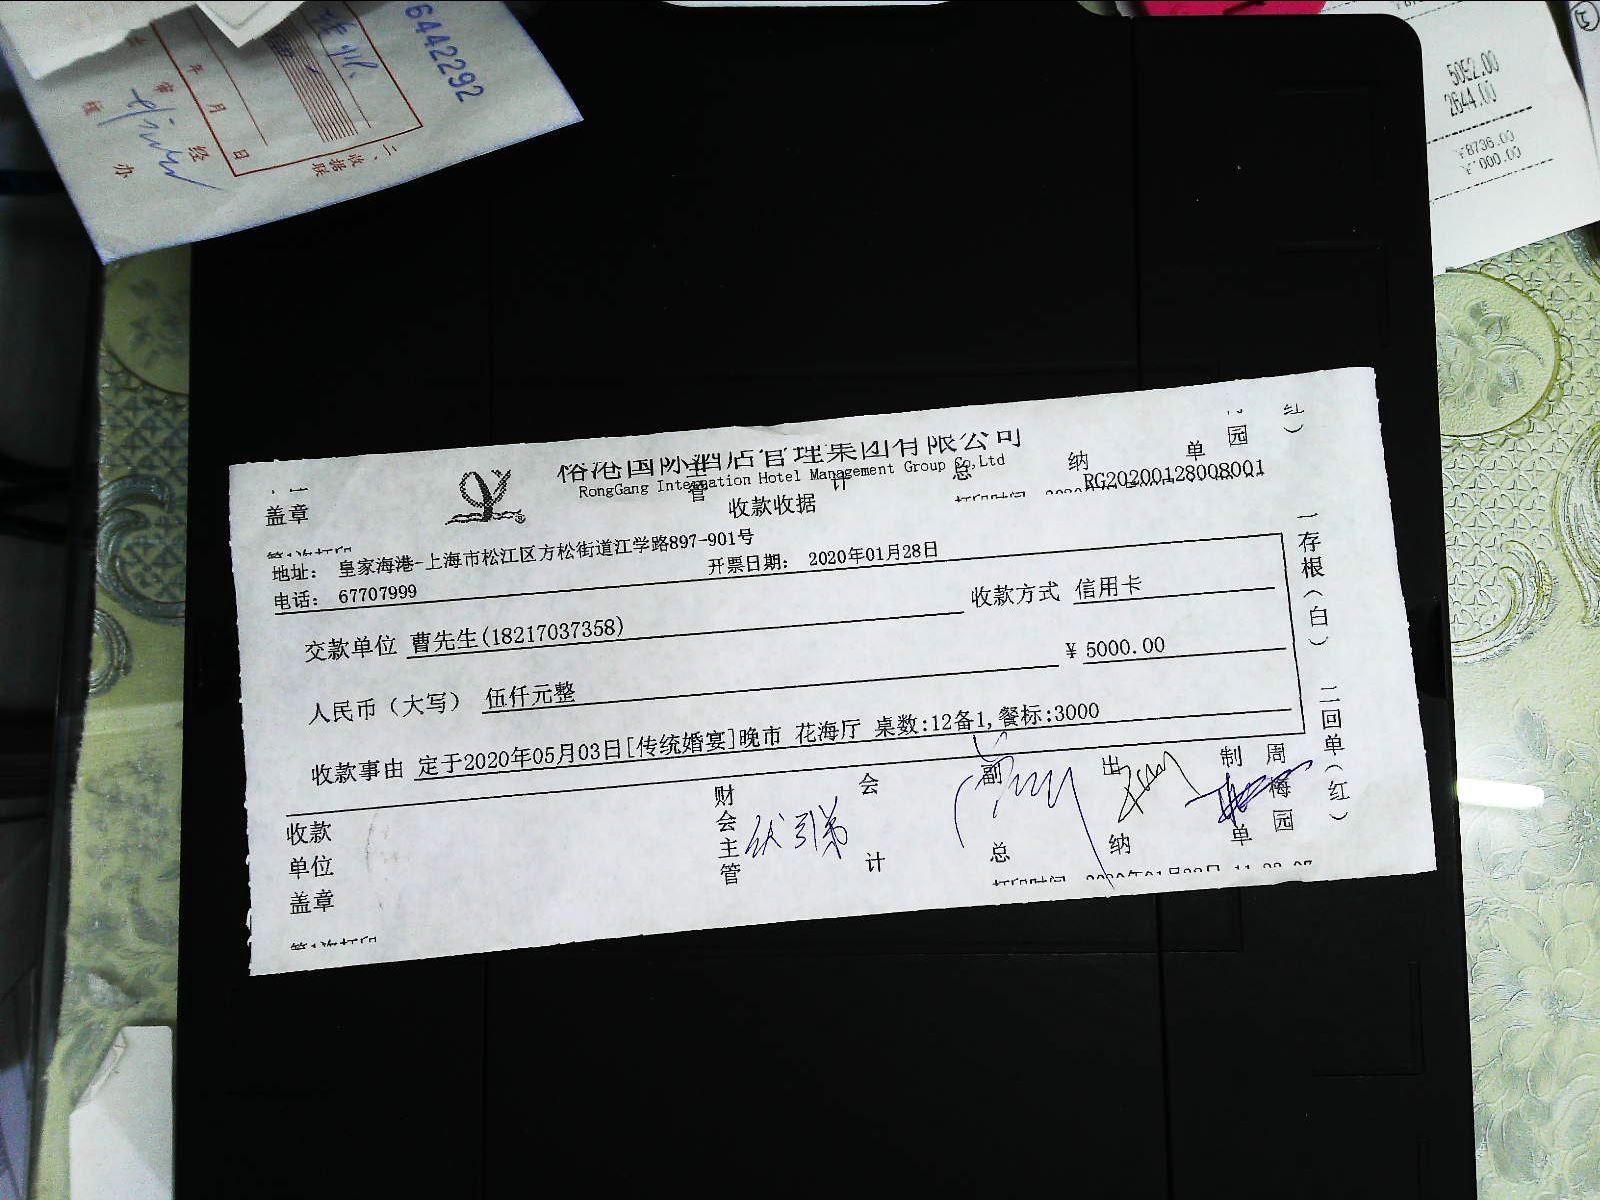 6442292
年 月 日
审核
经办
二、收据联
5092.00
2644.00
¥8736.00
红)
园
单
纳
总
计
主管
国际酒店管理集团有限公司
RongGang Internation Hotel Management Group Co,Ltd
RG20200128008001
盖章
收款收据
地址: 皇家海港-上海市松江区方松街道江学路897-901号
电话: 67707999
开票日期: 2020年01月28日
交款单位 曹先生(18217037358)
收款方式 信用卡
人民币(大写) 伍仟元整
¥ 5000.00
收款事由 定于2020年05月03日[传统婚宴]晚市 花海厅 桌数:12备1,餐标:3000
一存根(白) 二回单(红)
收款单位盖章
财会主管
会计
副总
出纳
制单
周梅园
第1次打印
打印时间